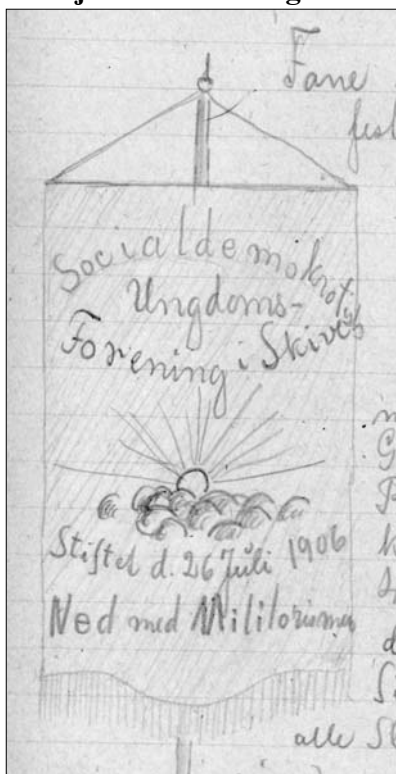 Fane
Socialdemokratisk
Ungdoms-
Forening i Skive
Stiftet d. 26 Juli 1906
Ned med Militarismen
alle